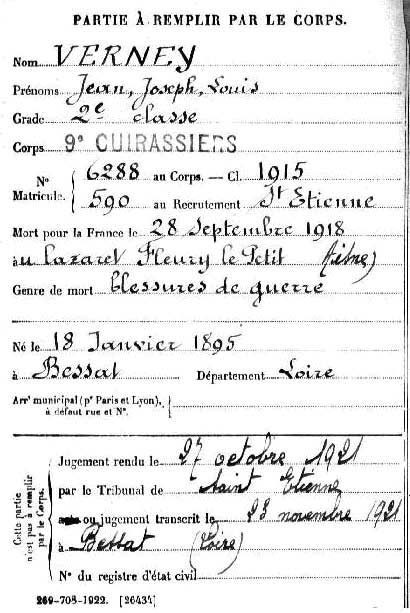 PARTIE À REMPLIR PAR LE CORPS.
Nom VERNEY
Prénoms Jean, Joseph, Louis
Grade 2e classe
Corps 9e CUIRASSIERS
N° Matricule. { 6288 au Corps. — Cl. 1915
590 au Recrutement St Etienne
Mort pour la France le 28 Septembre 1918
à u lazaret Fleury le Petit (Aisne)
Genre de mort blessures de guerre
Né le 18 Janvier 1895
à Bessat Département Loire
Arrt municipal (pr Paris et Lyon), à défaut rue et N°. {
Cette partie n'est pas à remplir par le Corps.
Jugement rendu le 27 octobre 1921
par le Tribunal de Saint Etienne
ou jugement transcrit le 23 novembre 1921
à Bessat (Loire)
N° du registre d'état civil
269-708-1922. [26434]